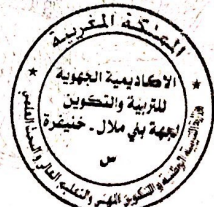 المملكة المغربية
الاكاديمية الجهوية
للتربية والتكوين
لجهة بني ملال - خنيفرة
س
وزارة التربية الوطنية والتكوين المهني والتعليم العالي والبحث العلمي